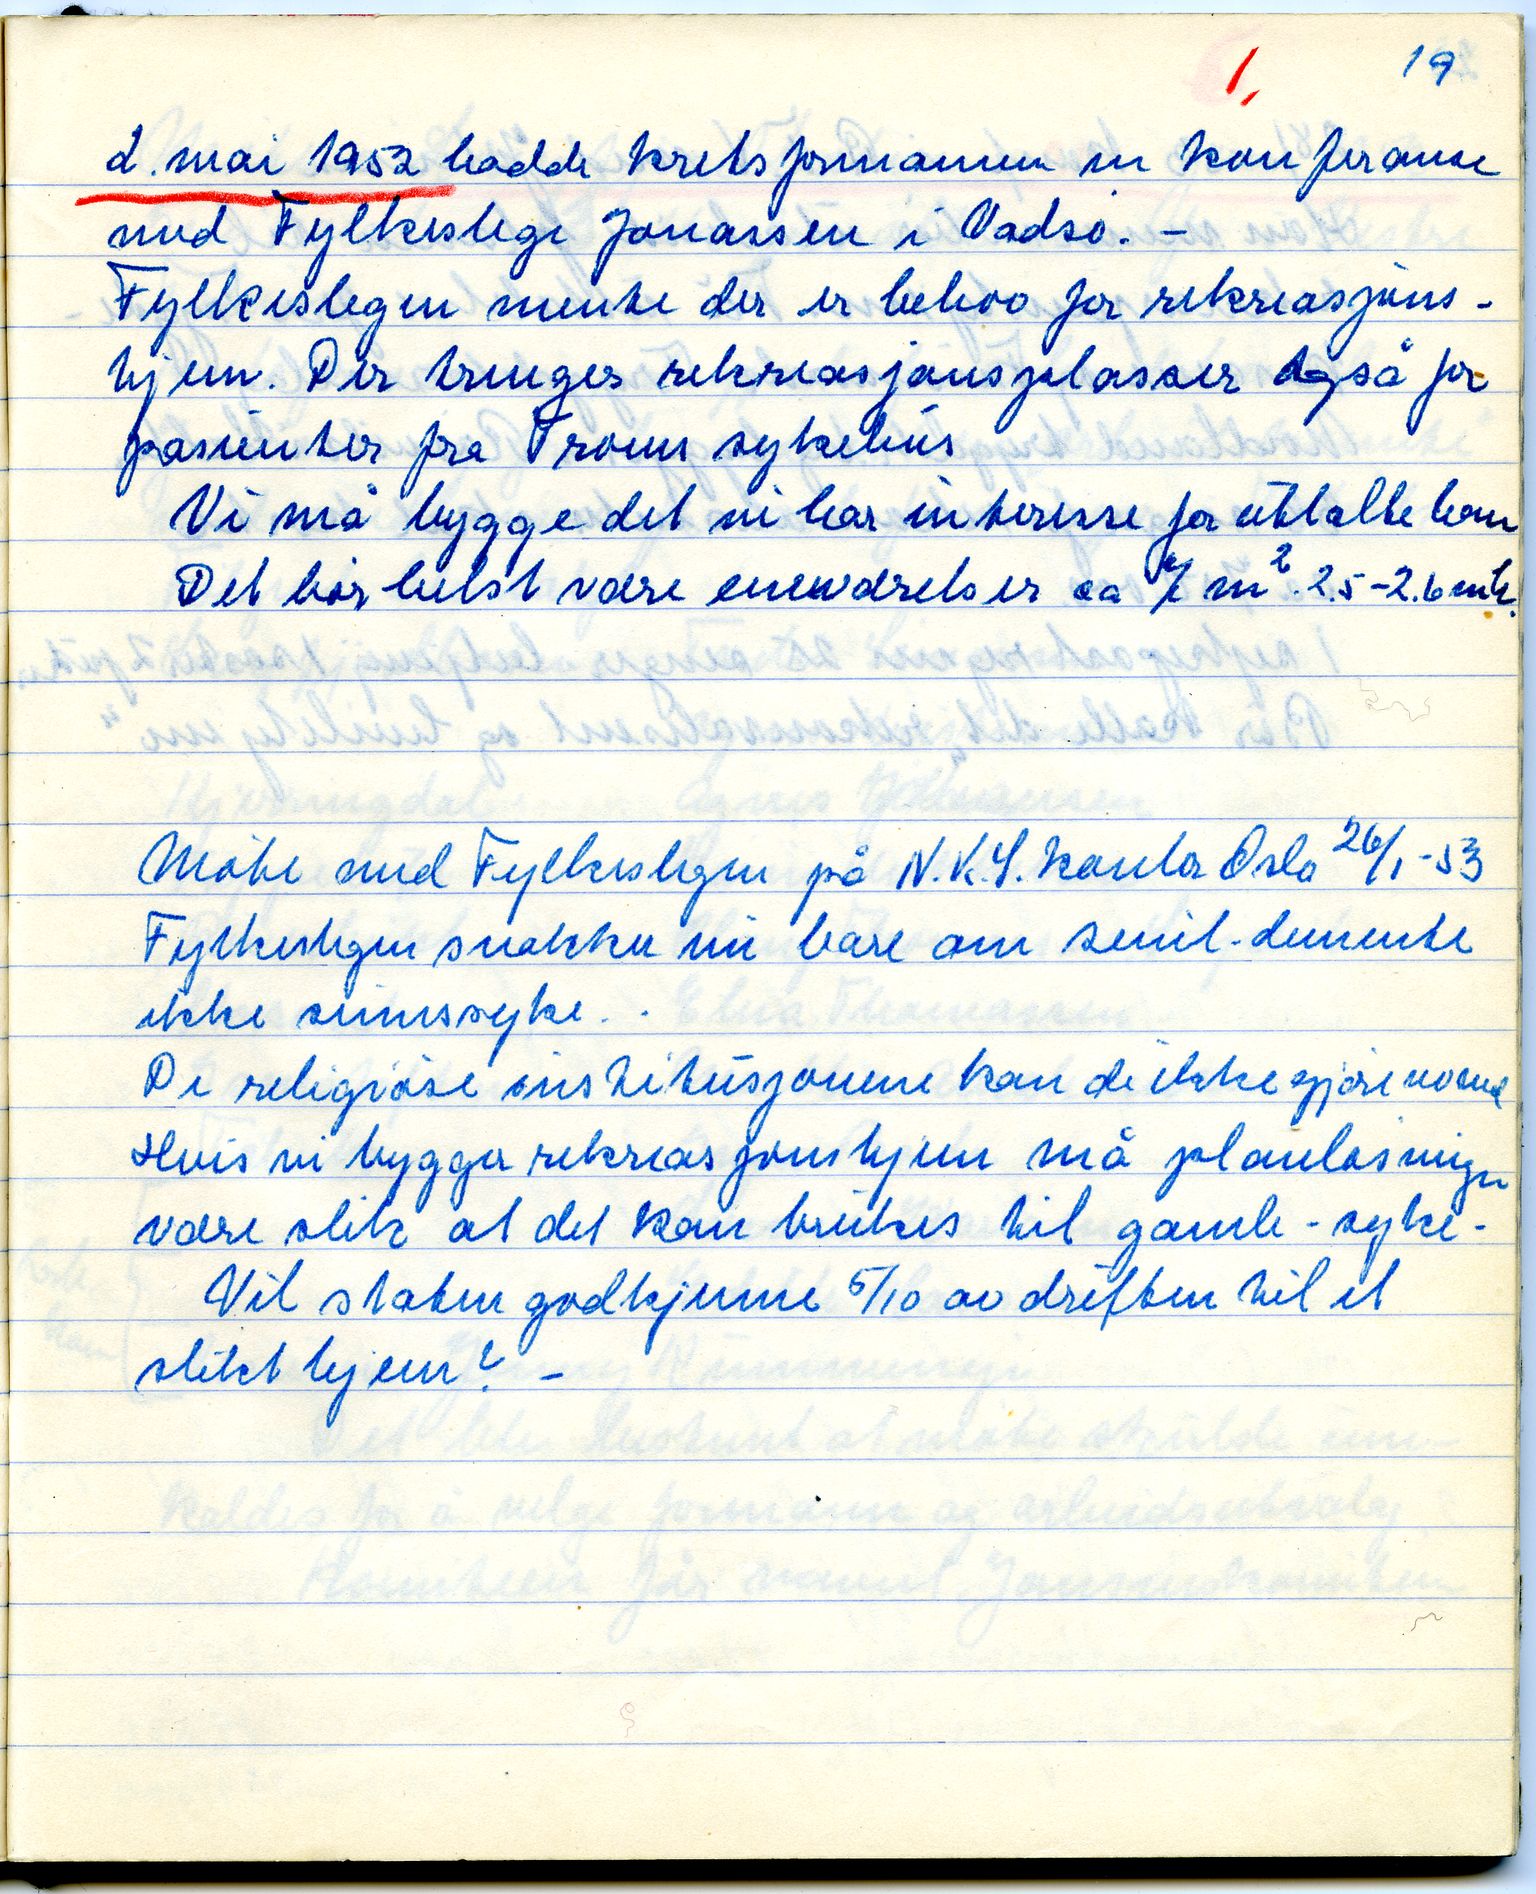 1, 19
2. mai 1952 hadde kretsformannen en konferanse
med Fylkeslege Jonassen i Vadsø. -
Fylkeslegen mente der er behov for rekreasjons-
hjem. Der trenges rekreasjonsplasser også for
pasienter fra Troms sykehus
Vi må bygge det vi har interesse for uttalte han
Det bør helst være eneværelser ca 7 m². 2.5-2.6 mtr.
Møte med Fylkeslegen på N.K.S. kontor Oslo 26/1-53
Fylkeslegen snakker nu bare om senil-demente
ikke sinnssyke. .
De religiøse institusjonene kan de ikke gjøre noe med
Hvis vi bygger rekreasjonshjem må planløsningen
være slik at det kan brukes til gamle-syke-
Vil staten godkjenne 5/10 av driften til et
slikt hjem? -